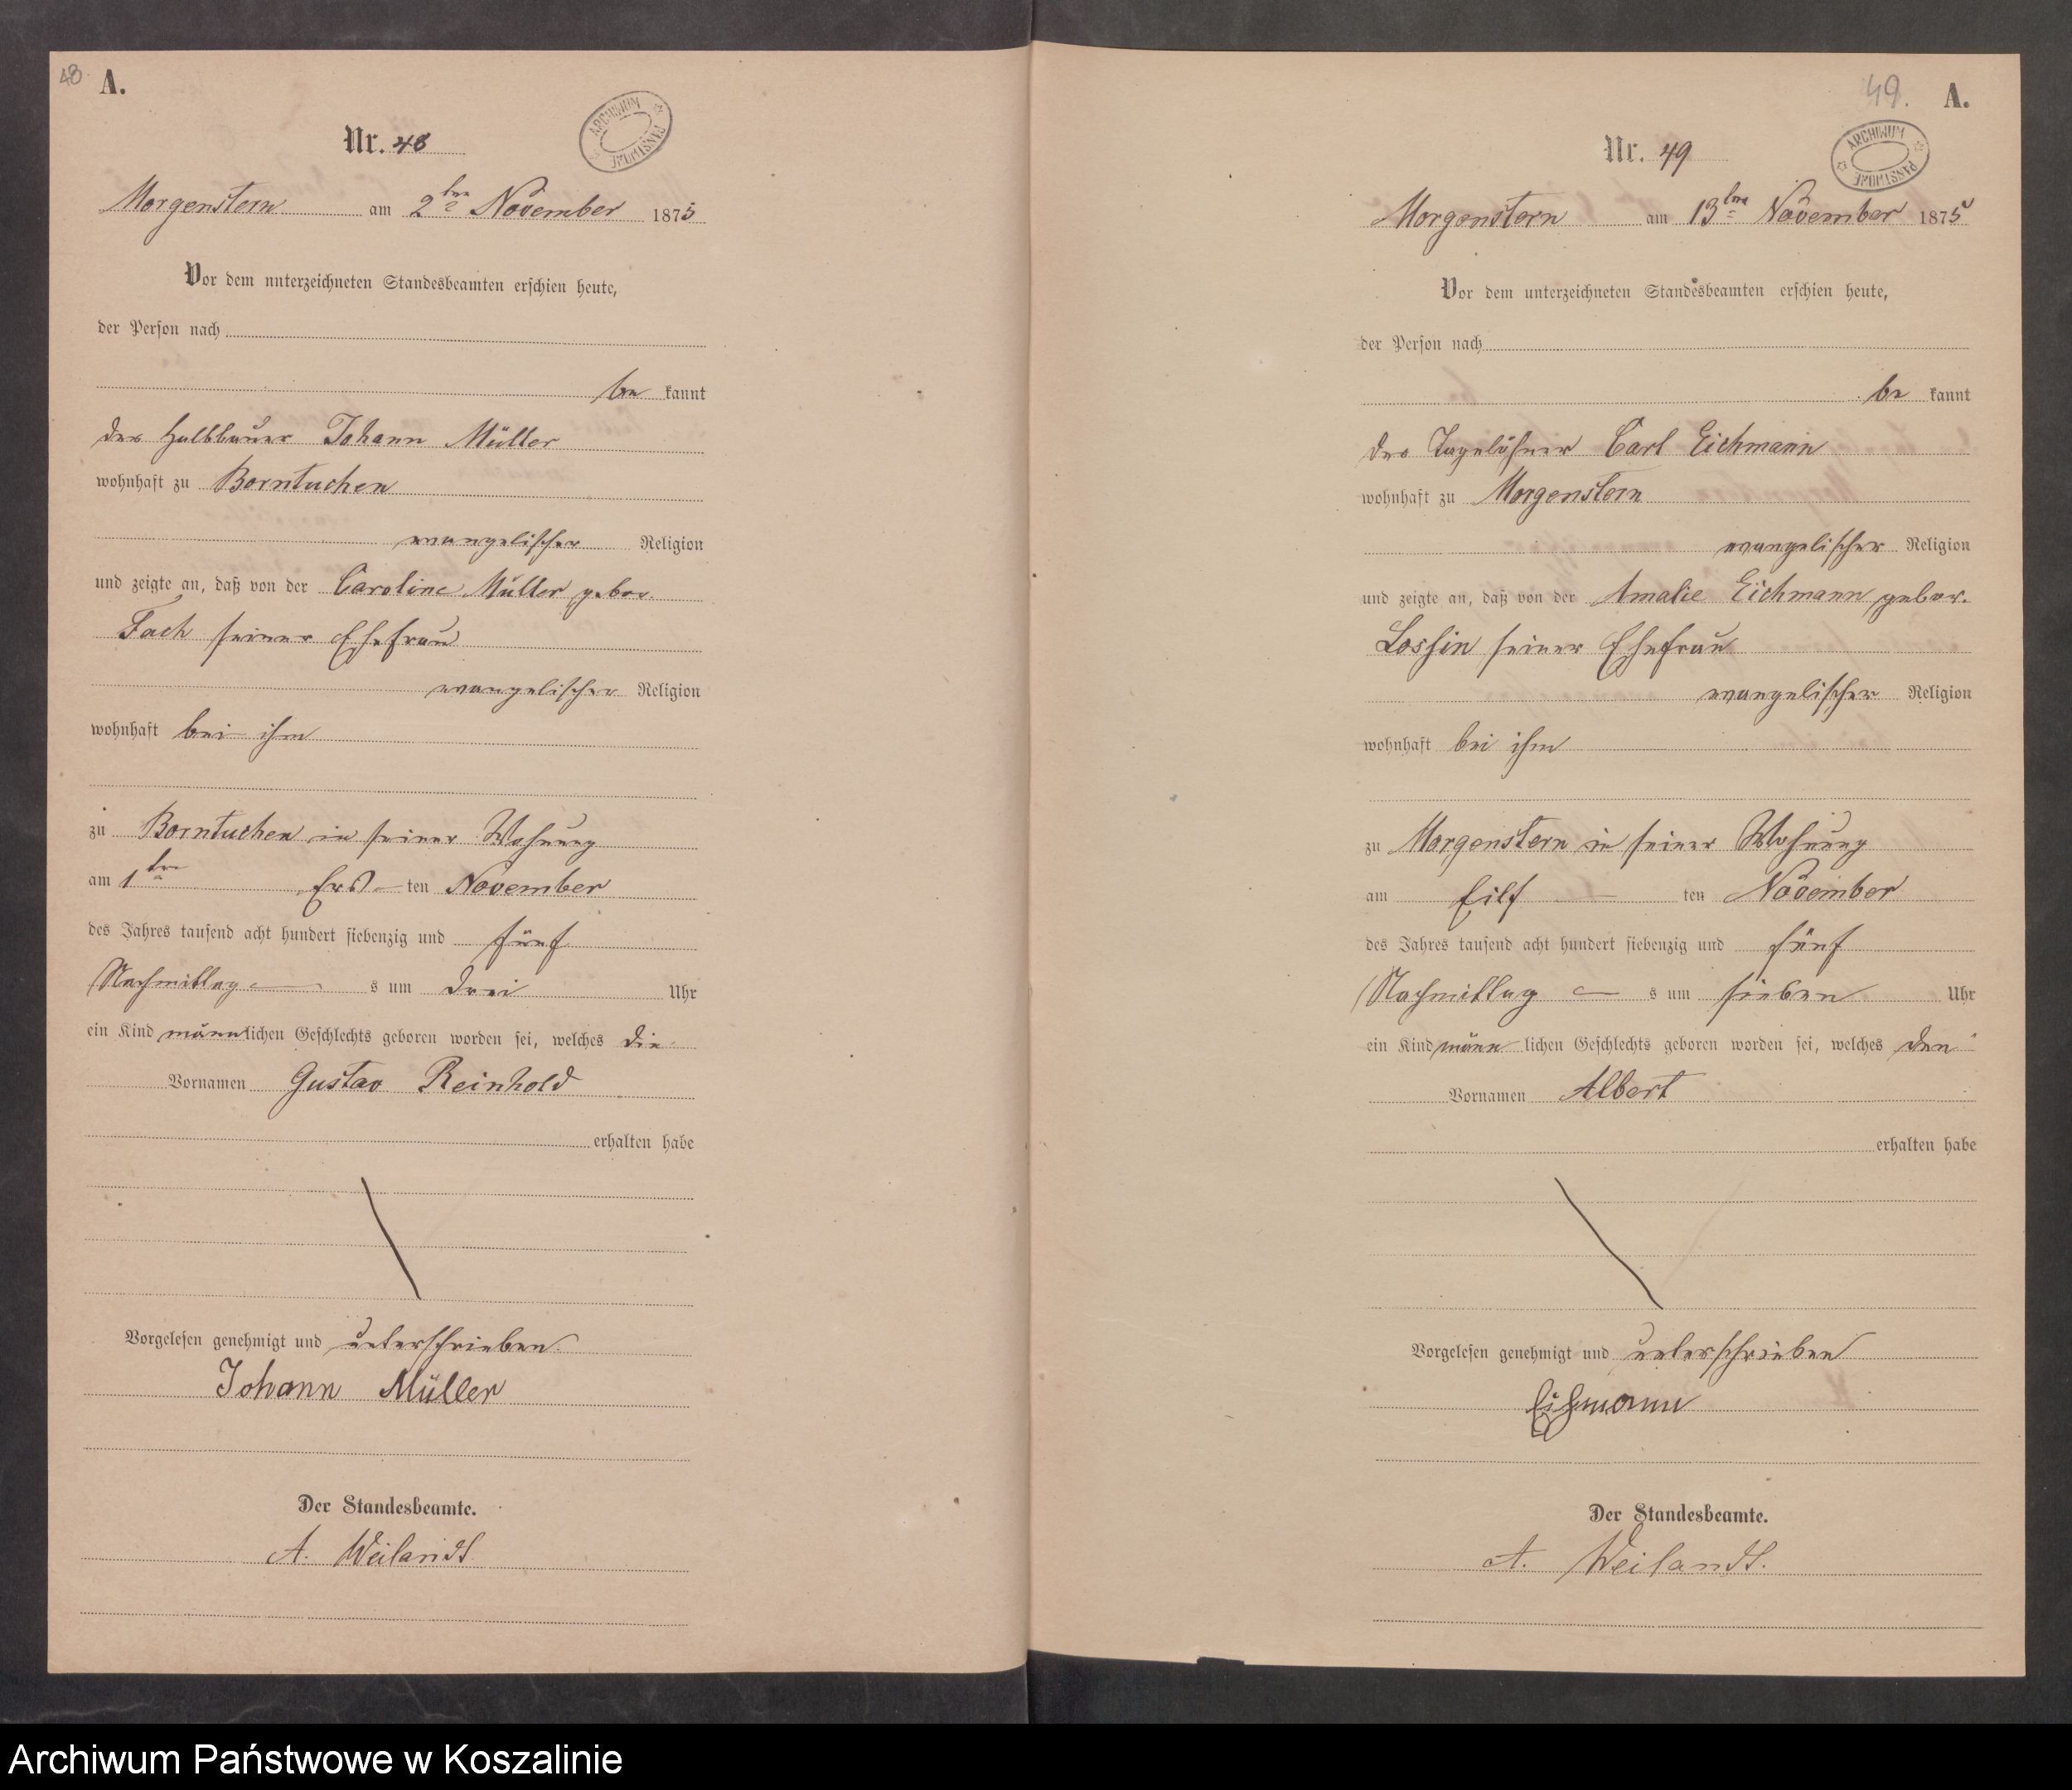 48.
A.
ARCHIWUM PAŃSTWOWE
Nr. 48
Morgenstern am 2ten November 1875
Vor dem unterzeichneten Standesbeamten erschien heute,
der Person nach
be kannt
der Halbbauer Johann Müller
wohnhaft zu Borntuchen
evangelischer Religion
und zeigte an, daß von der Caroline Müller gebor.
Fach seiner Ehefrau
evangelischer Religion
wohnhaft bei ihm
zu Borntuchen in seiner Wohnung
am 1ten Ers ten November
des Jahres tausend acht hundert siebenzig und fünf
Nachmittag s um drei Uhr
ein Kind männlichen Geschlechts geboren worden sei, welches die
Vornamen Gustav Reinhold
erhalten habe
Vorgelesen genehmigt und unterschrieben.
Johann Müller
Der Standesbeamte.
A. Weilandt
49.
A.
ARCHIWUM PAŃSTWOWE
Nr. 49
Morgenstern am 13ten November 1875
Vor dem unterzeichneten Standesbeamten erschien heute,
der Person nach
be kannt
der Tagelöhner Carl Eichmann
wohnhaft zu Morgenstern
evangelischer Religion
und zeigte an, daß von der Amalie Eichmann gebor.
Loshin seiner Ehefrau
evangelischer Religion
wohnhaft bei ihm
zu Morgenstern in seiner Wohnung
am Eilf ten November
des Jahres tausend acht hundert siebenzig und fünf
Nachmittag s um sieben Uhr
ein Kind männ lichen Geschlechts geboren worden sei, welches den
Vornamen Albert
erhalten habe
Vorgelesen genehmigt und unterschrieben
Eichmann
Der Standesbeamte.
A. Weilandt.
Archiwum Państwowe w Koszalinie